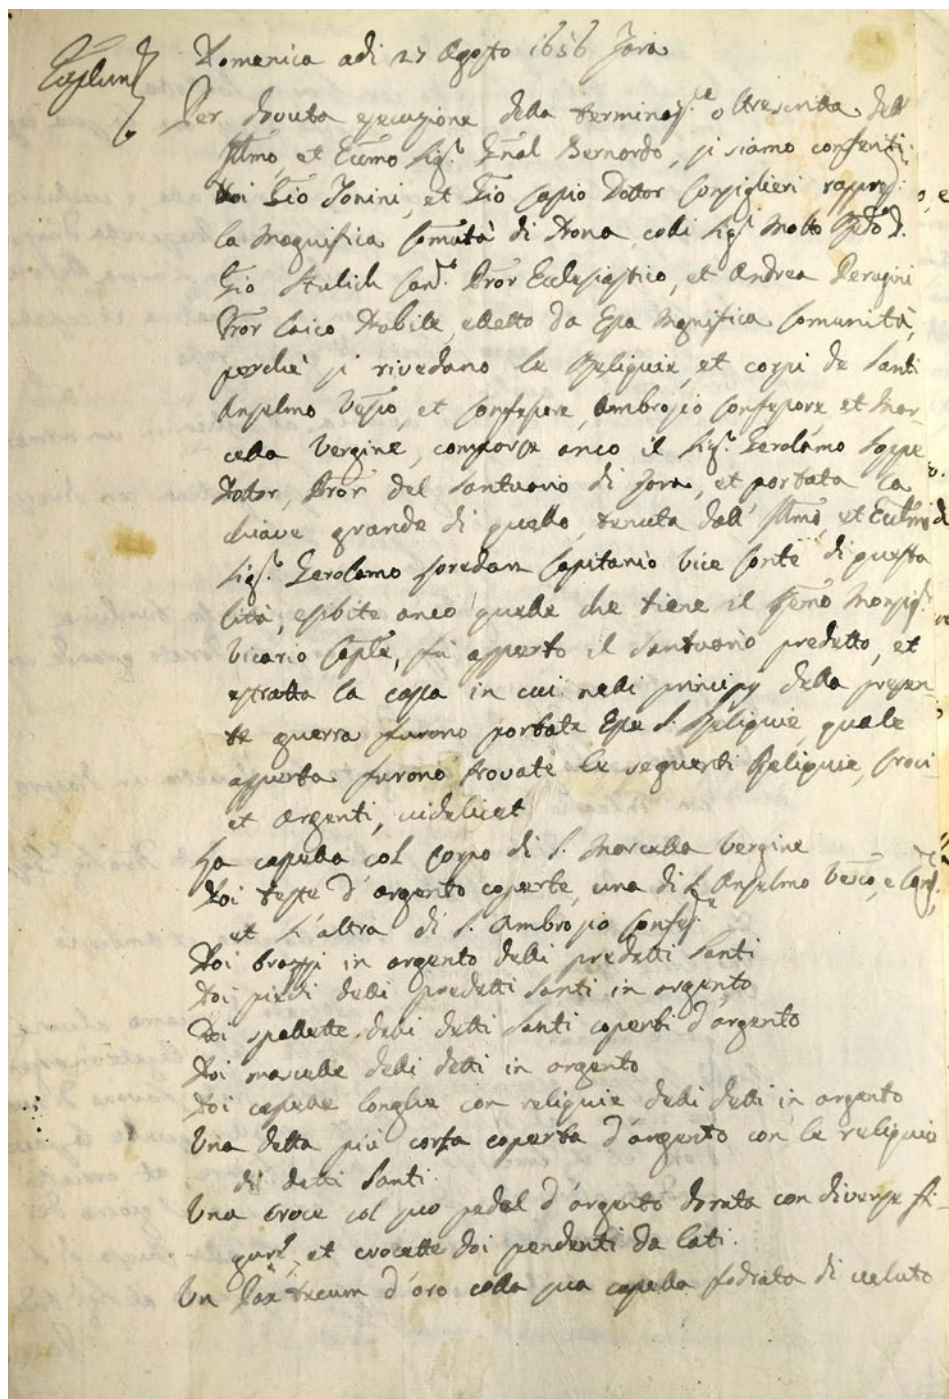 Exemplum
Domenica adi 27 Agosto 1656 Zara
Per dovuta essecuzione della terminaz.e oltrescritta dell
Ill'mo, et Ecc'mo Sig.r G'nal Bernardo, si siamo conferiti
Noi Gio Tonini, et Gio Dottor Consiglieri
la Magnifica Com'ità di Nona, colli Sig.ri Molto R'do D.
Gio Can.co P'ror Ecclesiastico, et Andrea Perugini
P'ror laico Nobile, elletto da Essa Magnifica Comunità,
perche si rivedano le Reliquie, et corpi de Santi
Anselmo Vesco, et Confessore, Ambrosio Confessore et Mar
cella Vergine, comparse anco il Sig.r Gerolamo Soppe
Dottor, P'ror del Santuario di Zara, et portata la
chiave grande di quello, tenuta dall' Ill'mo, et Ecc'mo
Sig.r Gerolamo Loredan Capitanio Vice Conte di questa
Città, esibite anco quelle che tiene il R'emo Monsig.r
Vicario Cap'le, fù apperto il Santuario predetto, et
estratta la cassa in cui nelli principij della presen
te guerra furono portate Esse S. Reliquie, quale
apperta furono trovate le seguenti Reliquie, Croci
et Argenti, videlicet
La capsella col Corpo di S. Marcella Vergine
Doi teste d'argento coperte, una di S. Anselmo Vesco, e Conf.
et l'altra di S. Ambrosio Confes.re
Doi brazzi in argento delli predetti Santi
Doi piedi delli predetti Santi in argento
Doi spallette delli detti Santi coperti d'argento
Doi mascelle delli detti in argento
Doi capselle longhe con reliquie delli detti in argento
Una detta più corta coperta d'argento con le reliquie
di detti Santi.
Una croce col suo pedal d'argento dorata con diverse fi-
gure, et crocette doi pendenti da lati.
Un d'oro colla sua capsella fodrata di veluto